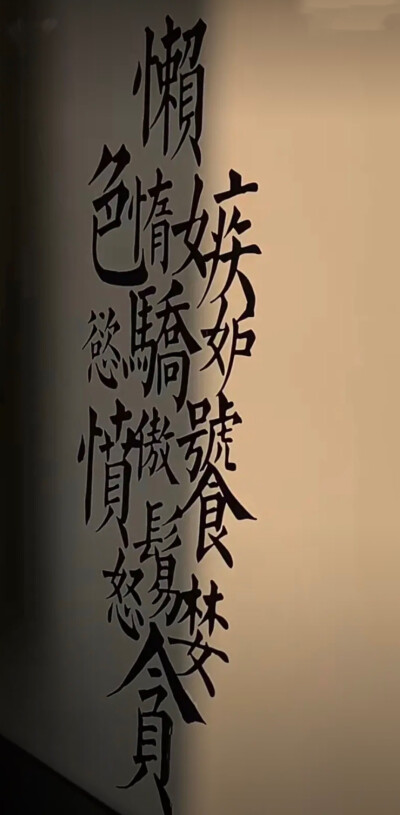 嫉妒饕婪
懶惰驕傲鬄貪
色慾憤怒